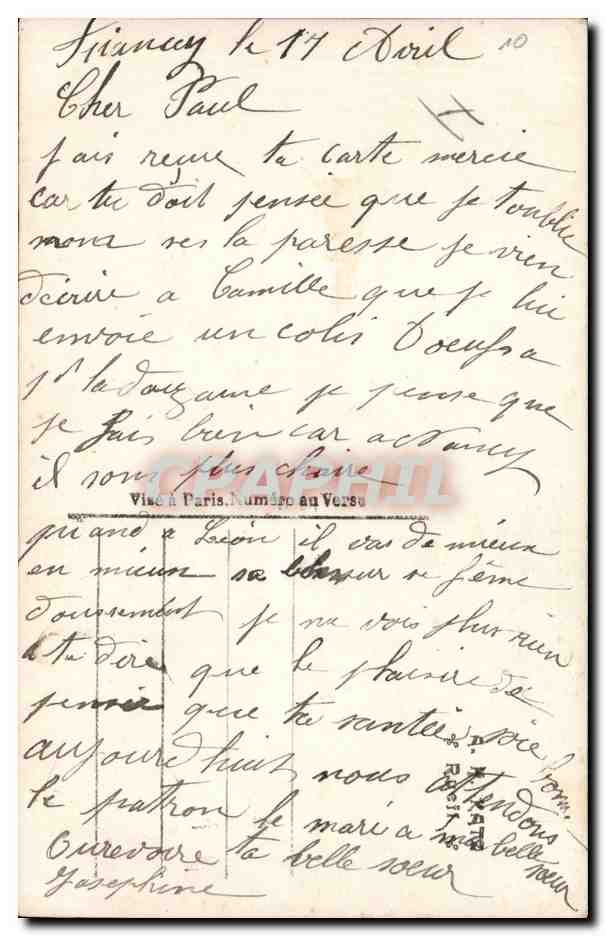 le 17 Avril
10
Cher Paul
j'ais reçue ta carte mercie
car tu doit pensée que je t'oublie
ses la paresse je vien
décrire a Camille que je lui
envoie un colis D'oeufs a
la douzaine je pense que
je fais bien car a Nancy
il sons plus chaire
CPAPHIL
Visé à Paris. Numéro au Verso
quand a Léon il vas de mieux
en mieux sa se féme
doussement je ne vois plus rien
a te dire que le plaisire de
pensée que ta santée soie bonne
aujourd huit nous attendons
le patron le mari a ma belle soeur
Ourevoire ta belle soeur
Josephine